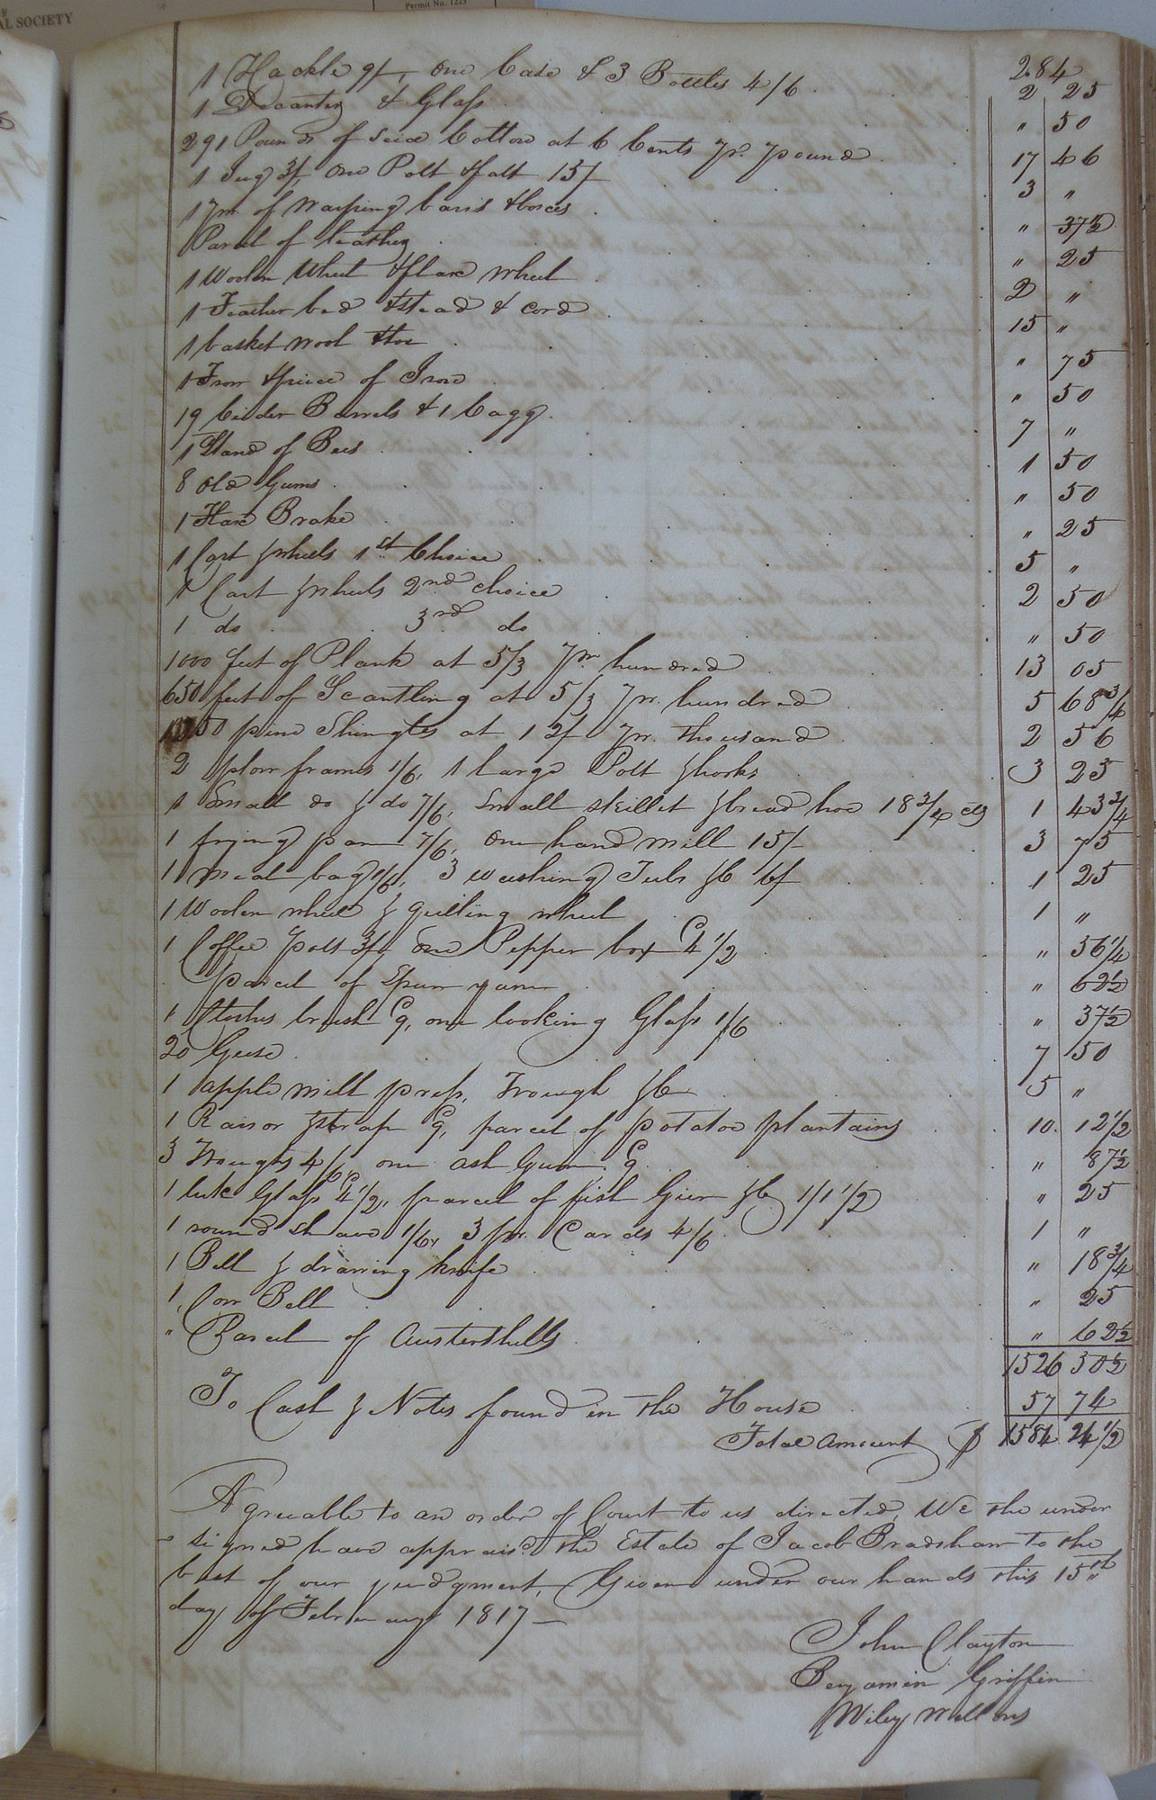 AL SOCIETY
Permit No. 1225
284
1 Hackle 9/, one Case & 3 Bottles 4/6 2 25
1 Decanter & Glass " 50
291 Pounds of seed Cotton at 6 Cents pr. pound 17 46
1 Jug 3/, one Pott & salt 15/ 3 "
1 pr. of Warping bars & boxes " 37½
Parcel of leather " 25
1 Woolen Wheel & flax wheel 2 "
1 Feather bed & stead & cord 15 "
1 basket wool & toe " 75
1 Iron & piece of Iron " 50
19 Cider Barrels & 1 Cagg 7 "
1 Stand of Bees 1 50
8 old Gums " 50
1 Flax Brake " 25
1 Cart & wheels 1st Choice 5 "
1 Cart & wheels 2nd choice 2 50
1 do 3rd do " 50
1000 feet of Plank at 5/3 pr. hundred 13 05
650 feet of Scantling at 5/3 pr. hundred 5 68¾
pine Shingles at 12/ pr. thousand 2 56
2 plow frames 1/6, 1 large Pott & hooks 3 25
1 Small do & do 7/6, Small skillet & bread hoe 18¾ cts 1 43¾
1 frying pan 7/6, one hand mill 15/ 3 75
1 meal bag 1/6, 3 washing Tubs &C 6/ 1 25
1 Woolen wheel & quilling wheel 1 "
1 Coffee pott 3/, one Pepper box 4½ " 56¼
Parcel of Spun yarn " 62½
1 Clothes brush 9, one looking Glass 1/6 " 37½
20 Geese 7 50
1 apple mill press, Trough &C 5 "
1 Rasor & strap 9, parcel of potatoe plantains 10. 12½
3 Troughs 4/6, one ash Gum 9 " 87½
1 Glass 4½, parcel of fish Gier &C 1/1½ " 25
1 round shave 1/6, 3 pr. Cards 4/6 1 "
1 Bell & drawing knife " 18¾
1 Cow Bell " 25
" Parcel of Austershells " 62½
1526 50½
To Cash & Notes found in the House 57 74
Total Amount $ 1584 24½
Agreeable to an order of Court to us directed, We the under
-signed have appraisd the Estate of Jacob Bradshaw to the
best of our judgment, Given under our hands this 15th
day of February 1817 —
John Clayton
Benjamin Griffin
Wiley